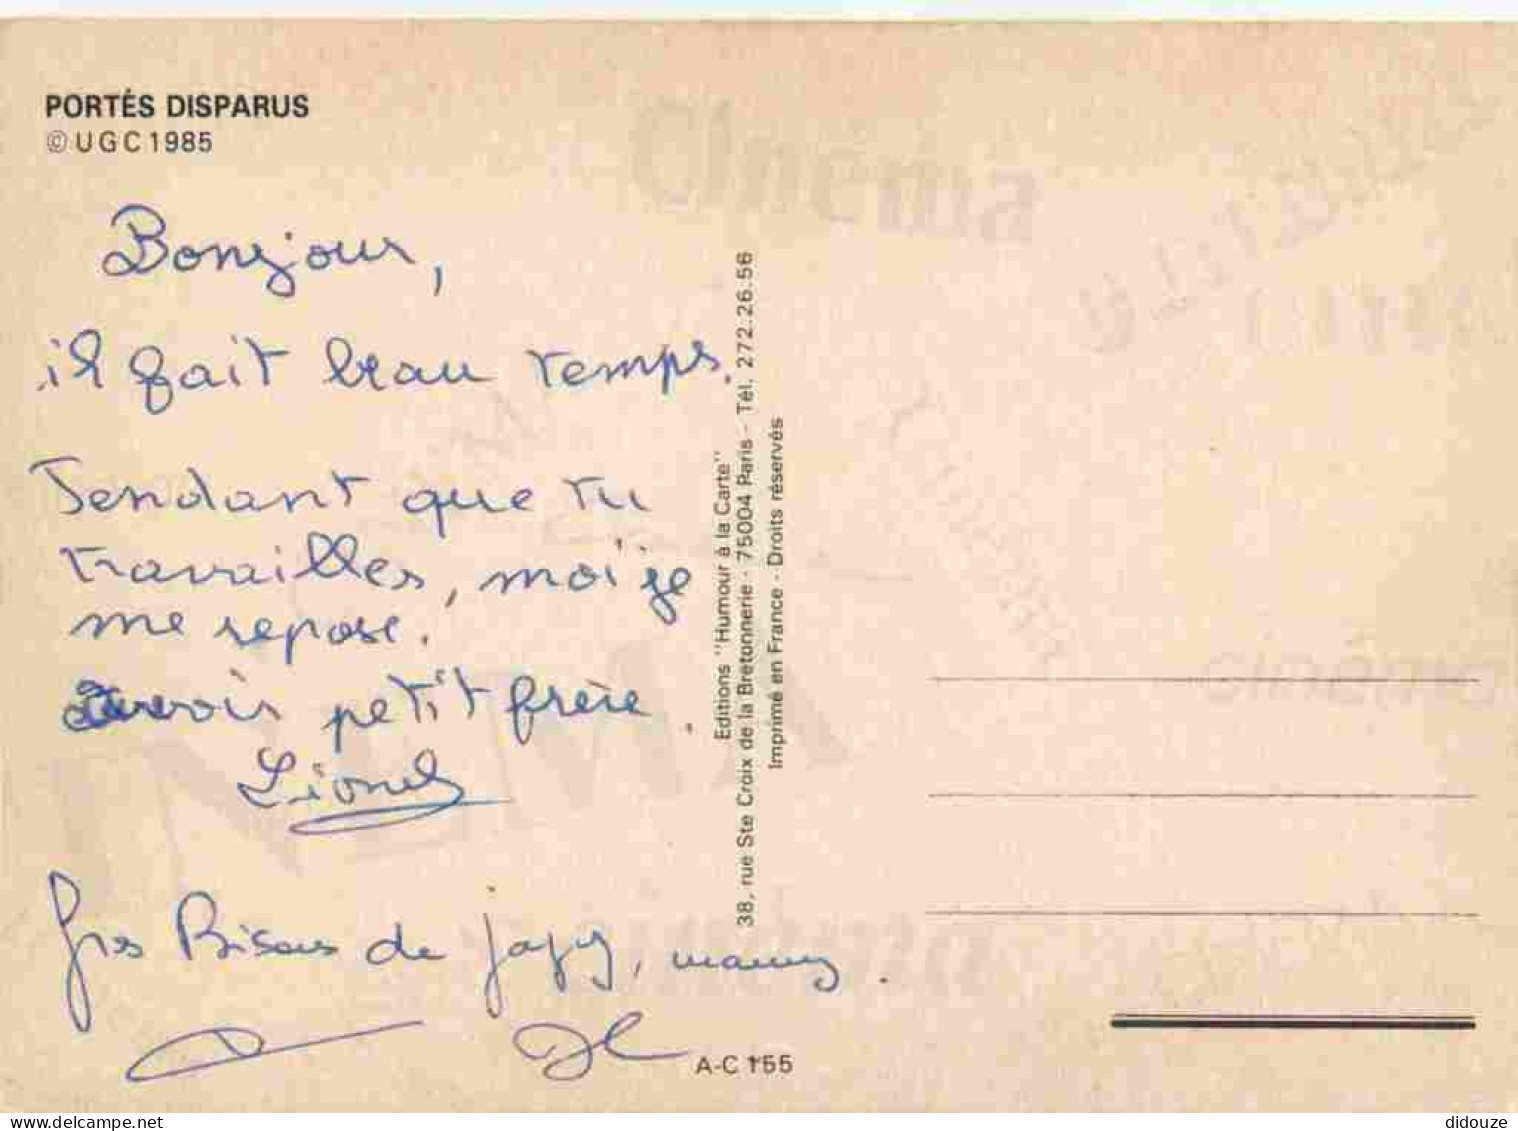 PORTÉS DISPARUS
© UGC 1985
Bonjour,
il fait beau temps.
Pendant que tu
travailles, moi je
me repose.
petit frère.
Lionel
Gros Bisous de papy, mamy.
Editions "Humour à la Carte"
38, rue Ste Croix de la Bretonnerie - 75004 Paris - Tél. 272.26.56
Imprimé en France - Droits réservés
A-C 155
didouze